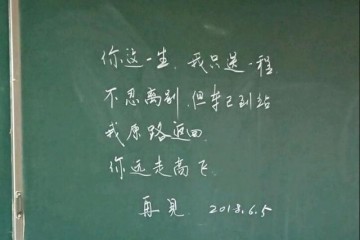 你这一生,我只送一程.
不忍离别,但车已到站
我原路返回.
你远走高飞.
再见 2018.6.5